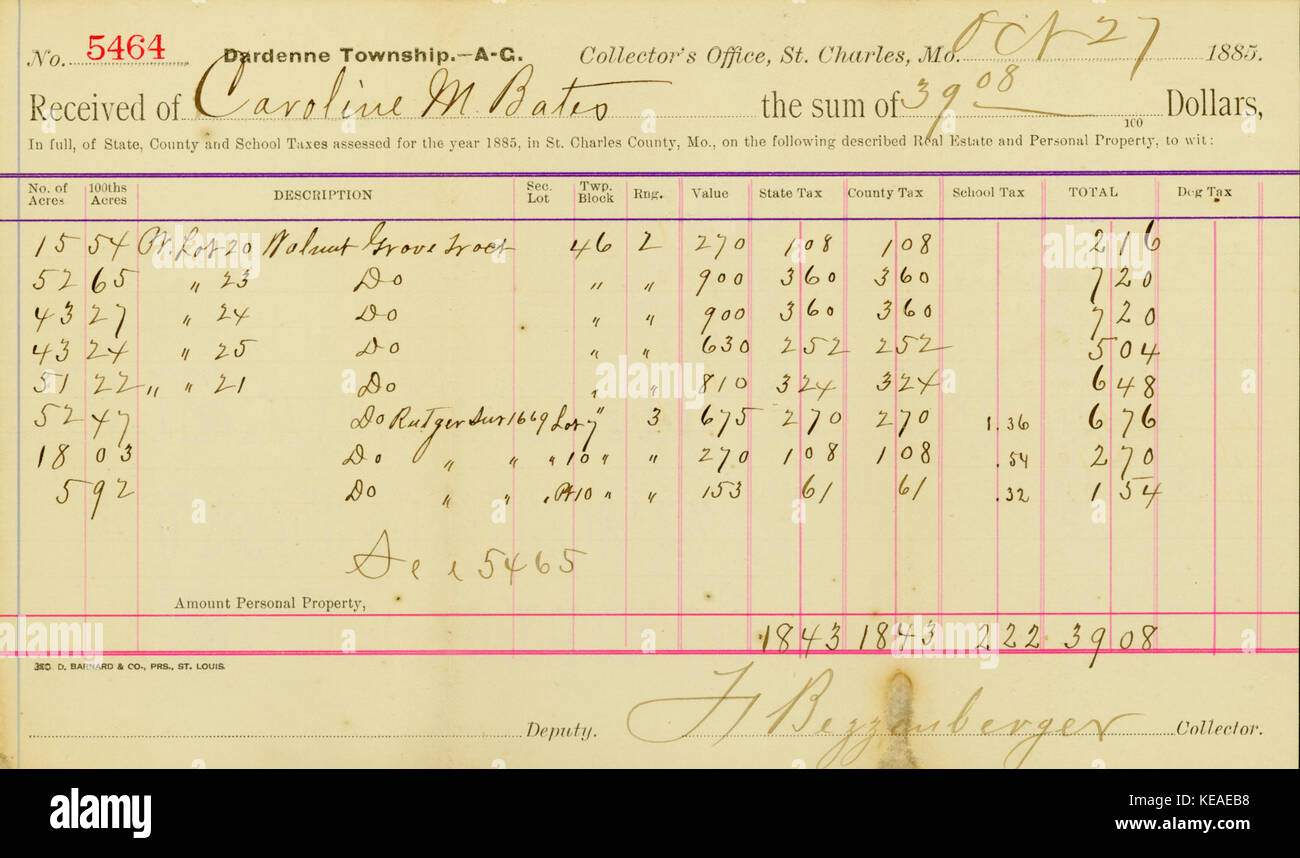 No. 5464 Dardenne Township.—A-G. Collector's Office, St. Charles, Mo. Oct 27 1885.
Received of Caroline M. Bates the sum of 39 08/100 Dollars,
In full, of State, County and School Taxes assessed for the year 1885, in St. Charles County, Mo., on the following described Real Estate and Personal Property, to wit:
No. of Acres 100ths Acres DESCRIPTION Sec. Lot Twp. Block Rng. Value State Tax County Tax School Tax TOTAL Dog Tax
15 54 Pt. Lot 20 Walnut Grove Tract 46 2 270 1 08 1 08 2 16
52 65 " 23 Do " " 900 3 60 3 60 7 20
43 27 " 24 Do " " 900 3 60 3 60 7 20
43 24 " 25 Do " " 630 2 52 2 52 5 04
51 22 " " 21 Do " " 810 3 24 3 24 6 48
52 47 Do Rutger Sur 1669 Lot 7 " 3 675 2 70 2 70 1.36 6 76
18 03 Do " " " 10 " " 270 1 08 1 08 .54 2 70
5 92 Do " " " Pt 10 " " 153 61 61 .32 1 54
See 5465
Amount Personal Property,
18 43 18 43 2 22 39 08
GEO. D. BARNARD & CO., PRS., ST. LOUIS.
Deputy. H Bezzenberger Collector.
alamy
Image ID: KEAEB8
www.alamy.com